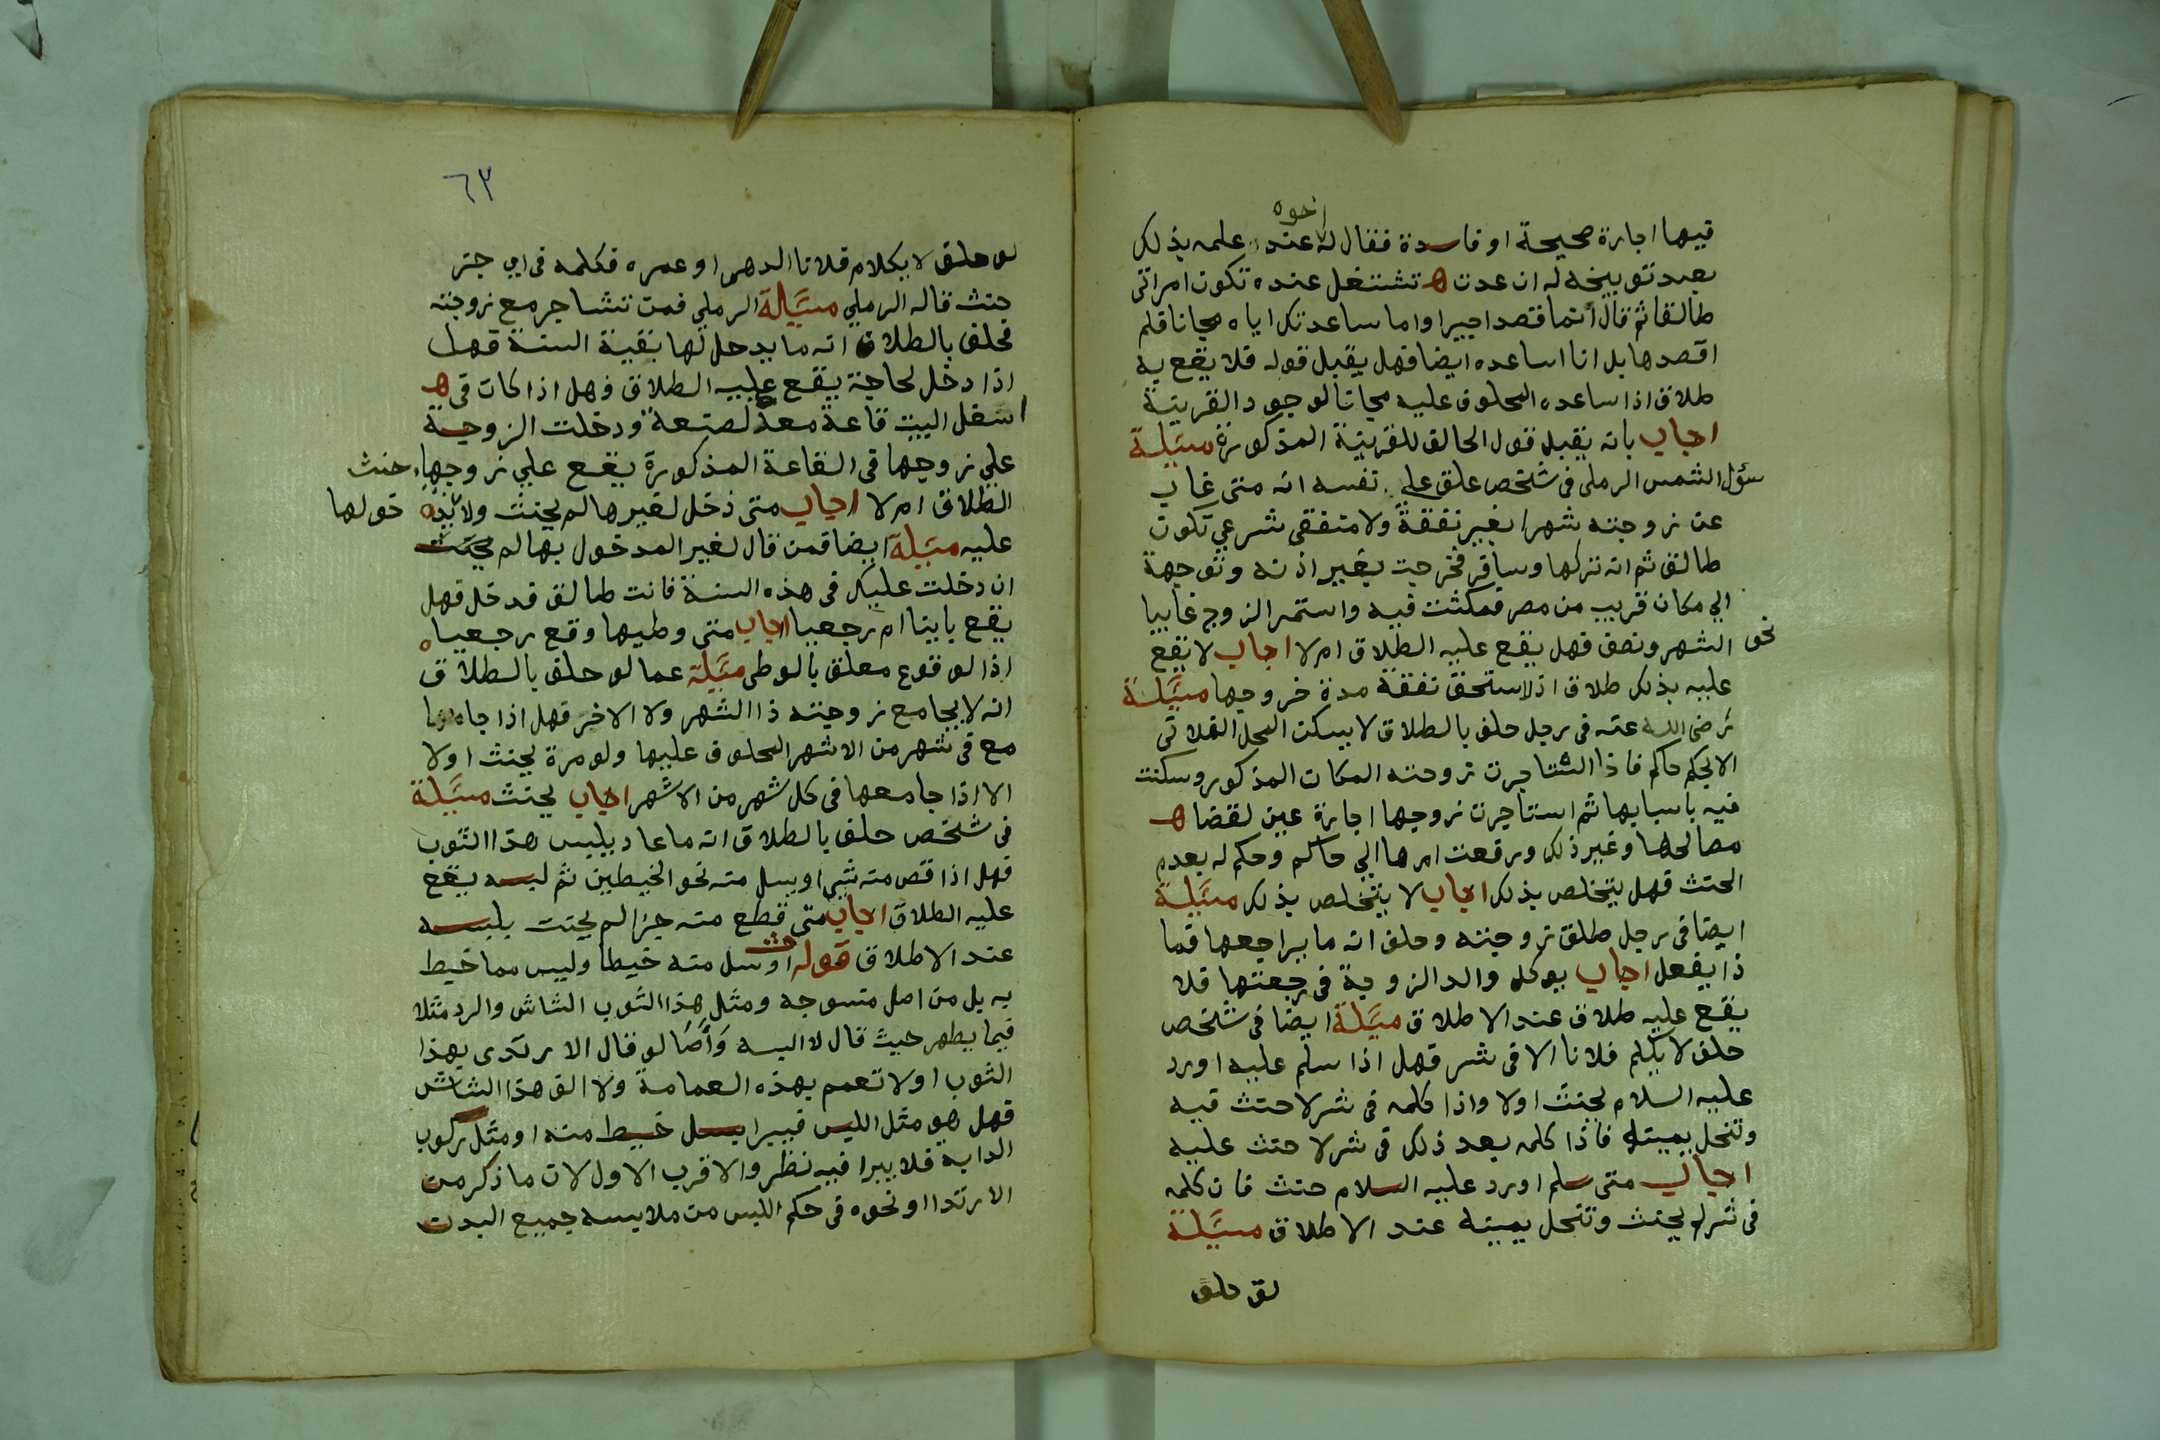 فيها اجارة صحيحة او فاسدة فقال له اخوه عند علمه بذلك
بعد توبيخه له ان عدت تشتغل عنده تكون امراتي
طالقا ثم قال انما قصد اجيرا واما مساعدتك اياه مجانا فلم
اقصدها بل انا اساعده ايضا فهل يقبل قوله فلا يقع به
طلاق اذا ساعده المحلوف عليه مجانا لوجود القرينة
اجاب بانه يقبل قول الحالف للقرينة المذكورة مسئلة
سؤل الشمس الرملي في شخص علق على نفسه انه متى غاب
عن زوجته شهرا بغير نفقة ولا منفقي شرعي تكون
طالق ثم انه تركها وسافر فخرجت بغير اذنه وتوجهة
الي مكان قريب من مصر فمكثت فيه واستمر الزوج غايبا
نحو الشهر ونصف فهل يقع عليه الطلاق ام لا اجاب لا يقع
عليه بذلك طلاق اذ لا ستحق نفقة مدة خروجها مسئلة
رضى الله عنه في رجل حلف بالطلاق لا يسكن المحل الفلاني
الا بحكم حاكم فاذا استاجرت زوجته المكان المذكور وسكنت
فيه باسبابها ثم استاجرت زوجها اجارة عين لقضا
مصالحها وغير ذلك ورفعت امرها الي حاكم وحكم له بعدم
الحنث فهل يتخلص بذلك اجاب لا يتخلص بذلك مسئلة
ايضا في رجل طلق زوجته وحلف انه ما يراجعها فما
ذا يفعل اجاب يوكل والد الزوجة في رجعتها فلا
يقع عليه طلاق عند الاطلاق مسئلة ايضا في شخص
حلف لا يكلم فلانا الا في شر فهل اذا سلم عليه او رد
عليه السلام يحنث اولا واذا كلمه في شر لا حنث فيه
وتنحل يمينه فاذا كلمه بعد ذلك في شر لا حنث عليه
اجاب متى سلم او رد عليه السلام حنث فان كلمه
في شر لم يحنث وتنحل يمينه عند الاطلاق مسئلة
لو حلف
٦٣
لو حلف لا يكلام فلانا الدهر او عمره فكلمه في اي جز
حنث قاله الرملي مسئلة الرملي فمن تشاجر مع زوجته
فحلف بالطلاق انه ما يدخل لها بقية السنة فهل
اذا دخل لحاجة يقع عليه الطلاق وهل اذا كان في
اسفل البيت قاعة معدة لصنعة ودخلت الزوجة
علي زوجها في القاعة المذكورة يقع علي زوجها حنث
الطلاق ام لا اجاب متى دخل لغيرها لم يحنث ولا بد دخولها
عليه مسئلة ايضا فمن قال لغير المدخول بها لم يحنث
ان دخلت عليكى في هذه السنة فانت طالق فدخل فهل
يقع باينا ام رجعيا اجاب متى وطيها وقع رجعيا
اذ الوقوع معلق بالوطى مسئلة عما لو حلف بالطلاق
انه لا يجامع زوجته ذا الشهر ولا الاخر فهل اذا جامعها
مع في شهر من الاشهر المحلوف عليها ولو مرة يحنث اولا
الا اذا جامعها في كل شهر من الاشهر اجاب يحنث مسئلة
في شخص حلف بالطلاق انه ما عاد يلبس هذا الثوب
فهل اذا قص منه شي او يسل منه نحو الخيطين ثم لبسه يقع
عليه الطلاق اجاب متى قطع منه جزا لم يحنث بلبسه
عند الاطلاق قوله او سل منه خيطا وليس مما خيط
به بل من اصل منسوجه ومثل هذا الثوب الشاش والرد مثلا
فيما يظهر حيث قال لا البسه وأما لو قال لا يرتدى بهذا
الثوب او لا تعمم بهذه العمامة ولا الف هذا الشاش
فهل هو مثل اللبس فيبرا بسل خيط منه او مثل ركوب
الدابة فلا يبرا فيه نظر والاقرب الاول لان ما ذكر من
الارتدا او نحوه في حكم اللبس من ملابسه جميع البدن